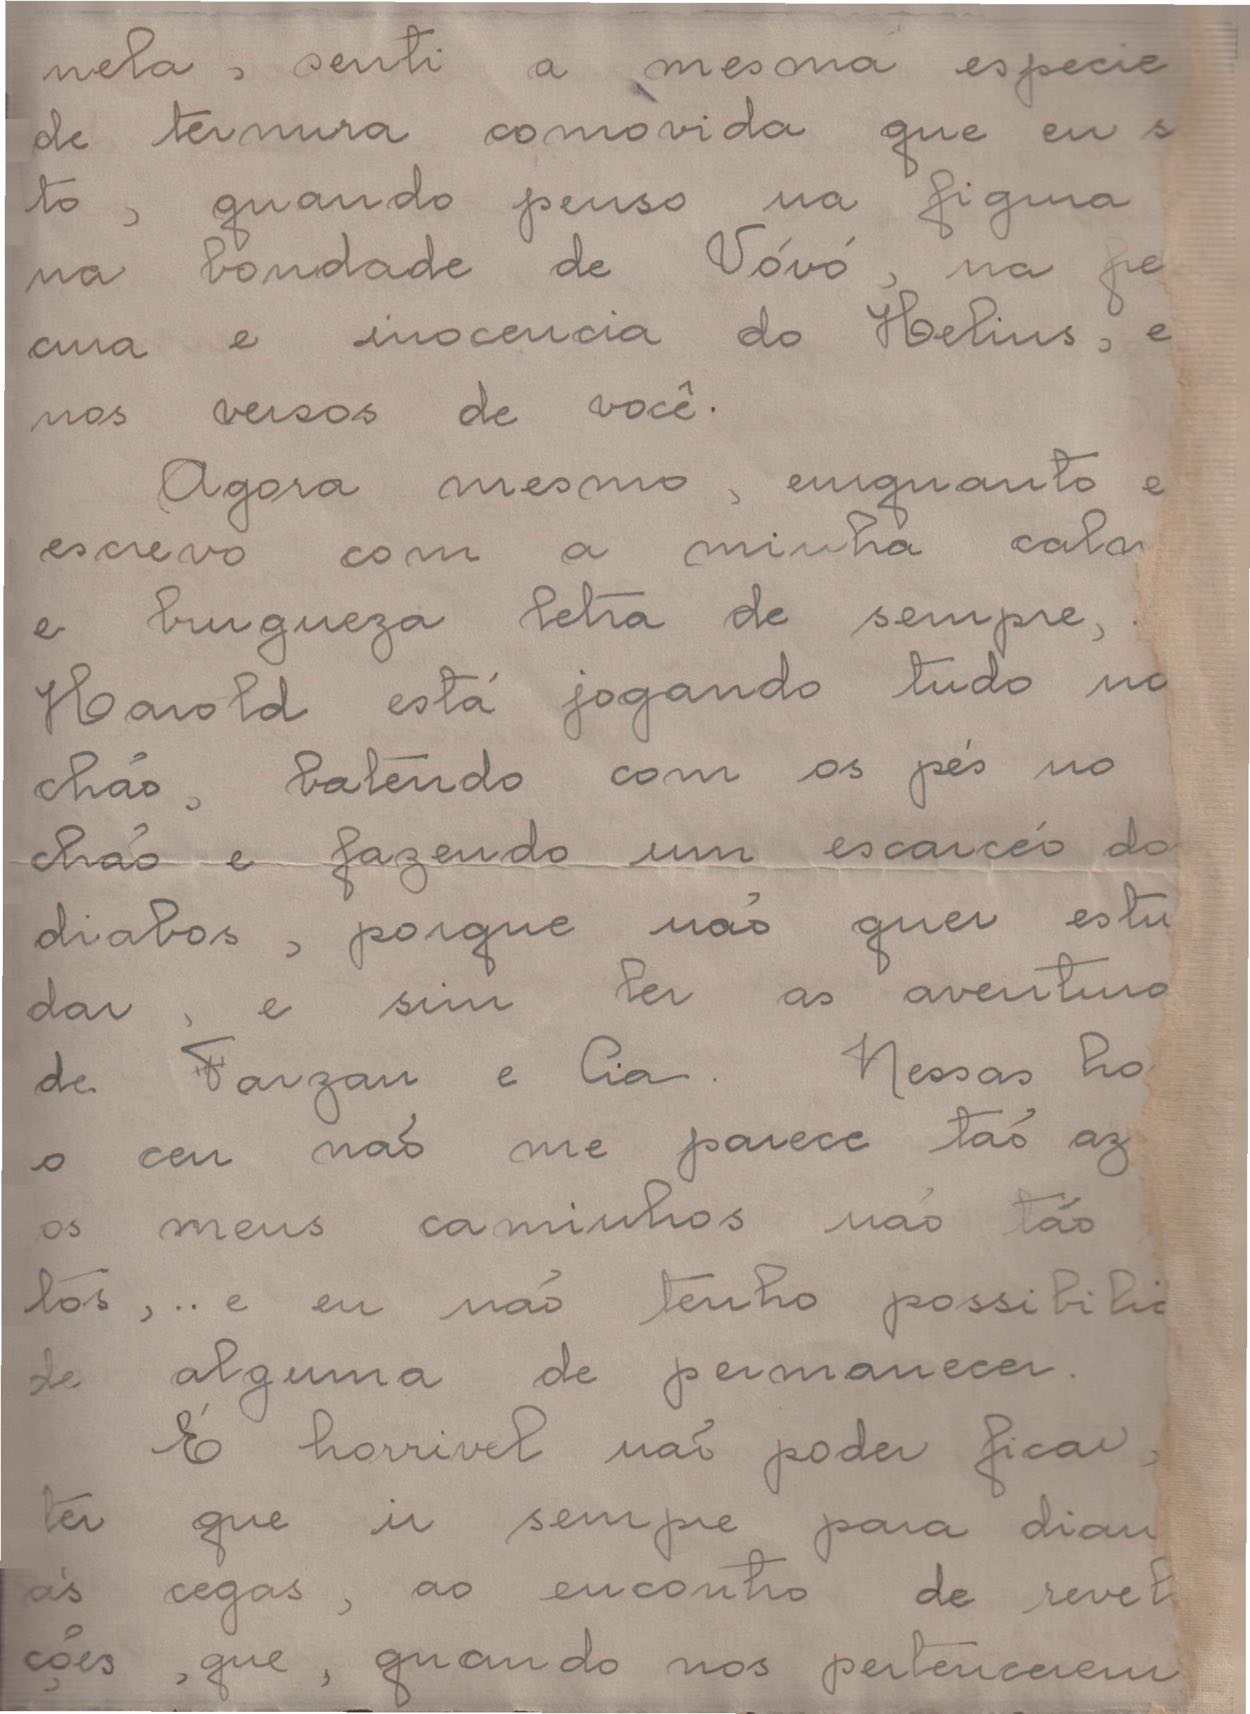 nela, senti a mesma especie
de ternura comovida que eu s
to, quando penso na figura
na bondade de Vóvó, na pe
ana e inocencia do Helius, e
nos versos de você.
Agora mesmo, emquanto e
escrevo com a minha calm
e burgueza letra de sempre,
Harold está jogando tudo no
chão, batendo com os pés no
chão e fazendo um escarcéo do
diabos, porque não quer estu
dar, e sim ler as aventura
de Tarzan e Cia. Nessas ho
o ceu não me parece tão az
os meus caminhos não tão
tos,.. e eu não tenho possibilid
de alguma de permanecer.
É horrivel não poder ficar,
ter que ir sempre para dian
ás cegas, ao encontro de revel
ções, que, quando nos pertencerem